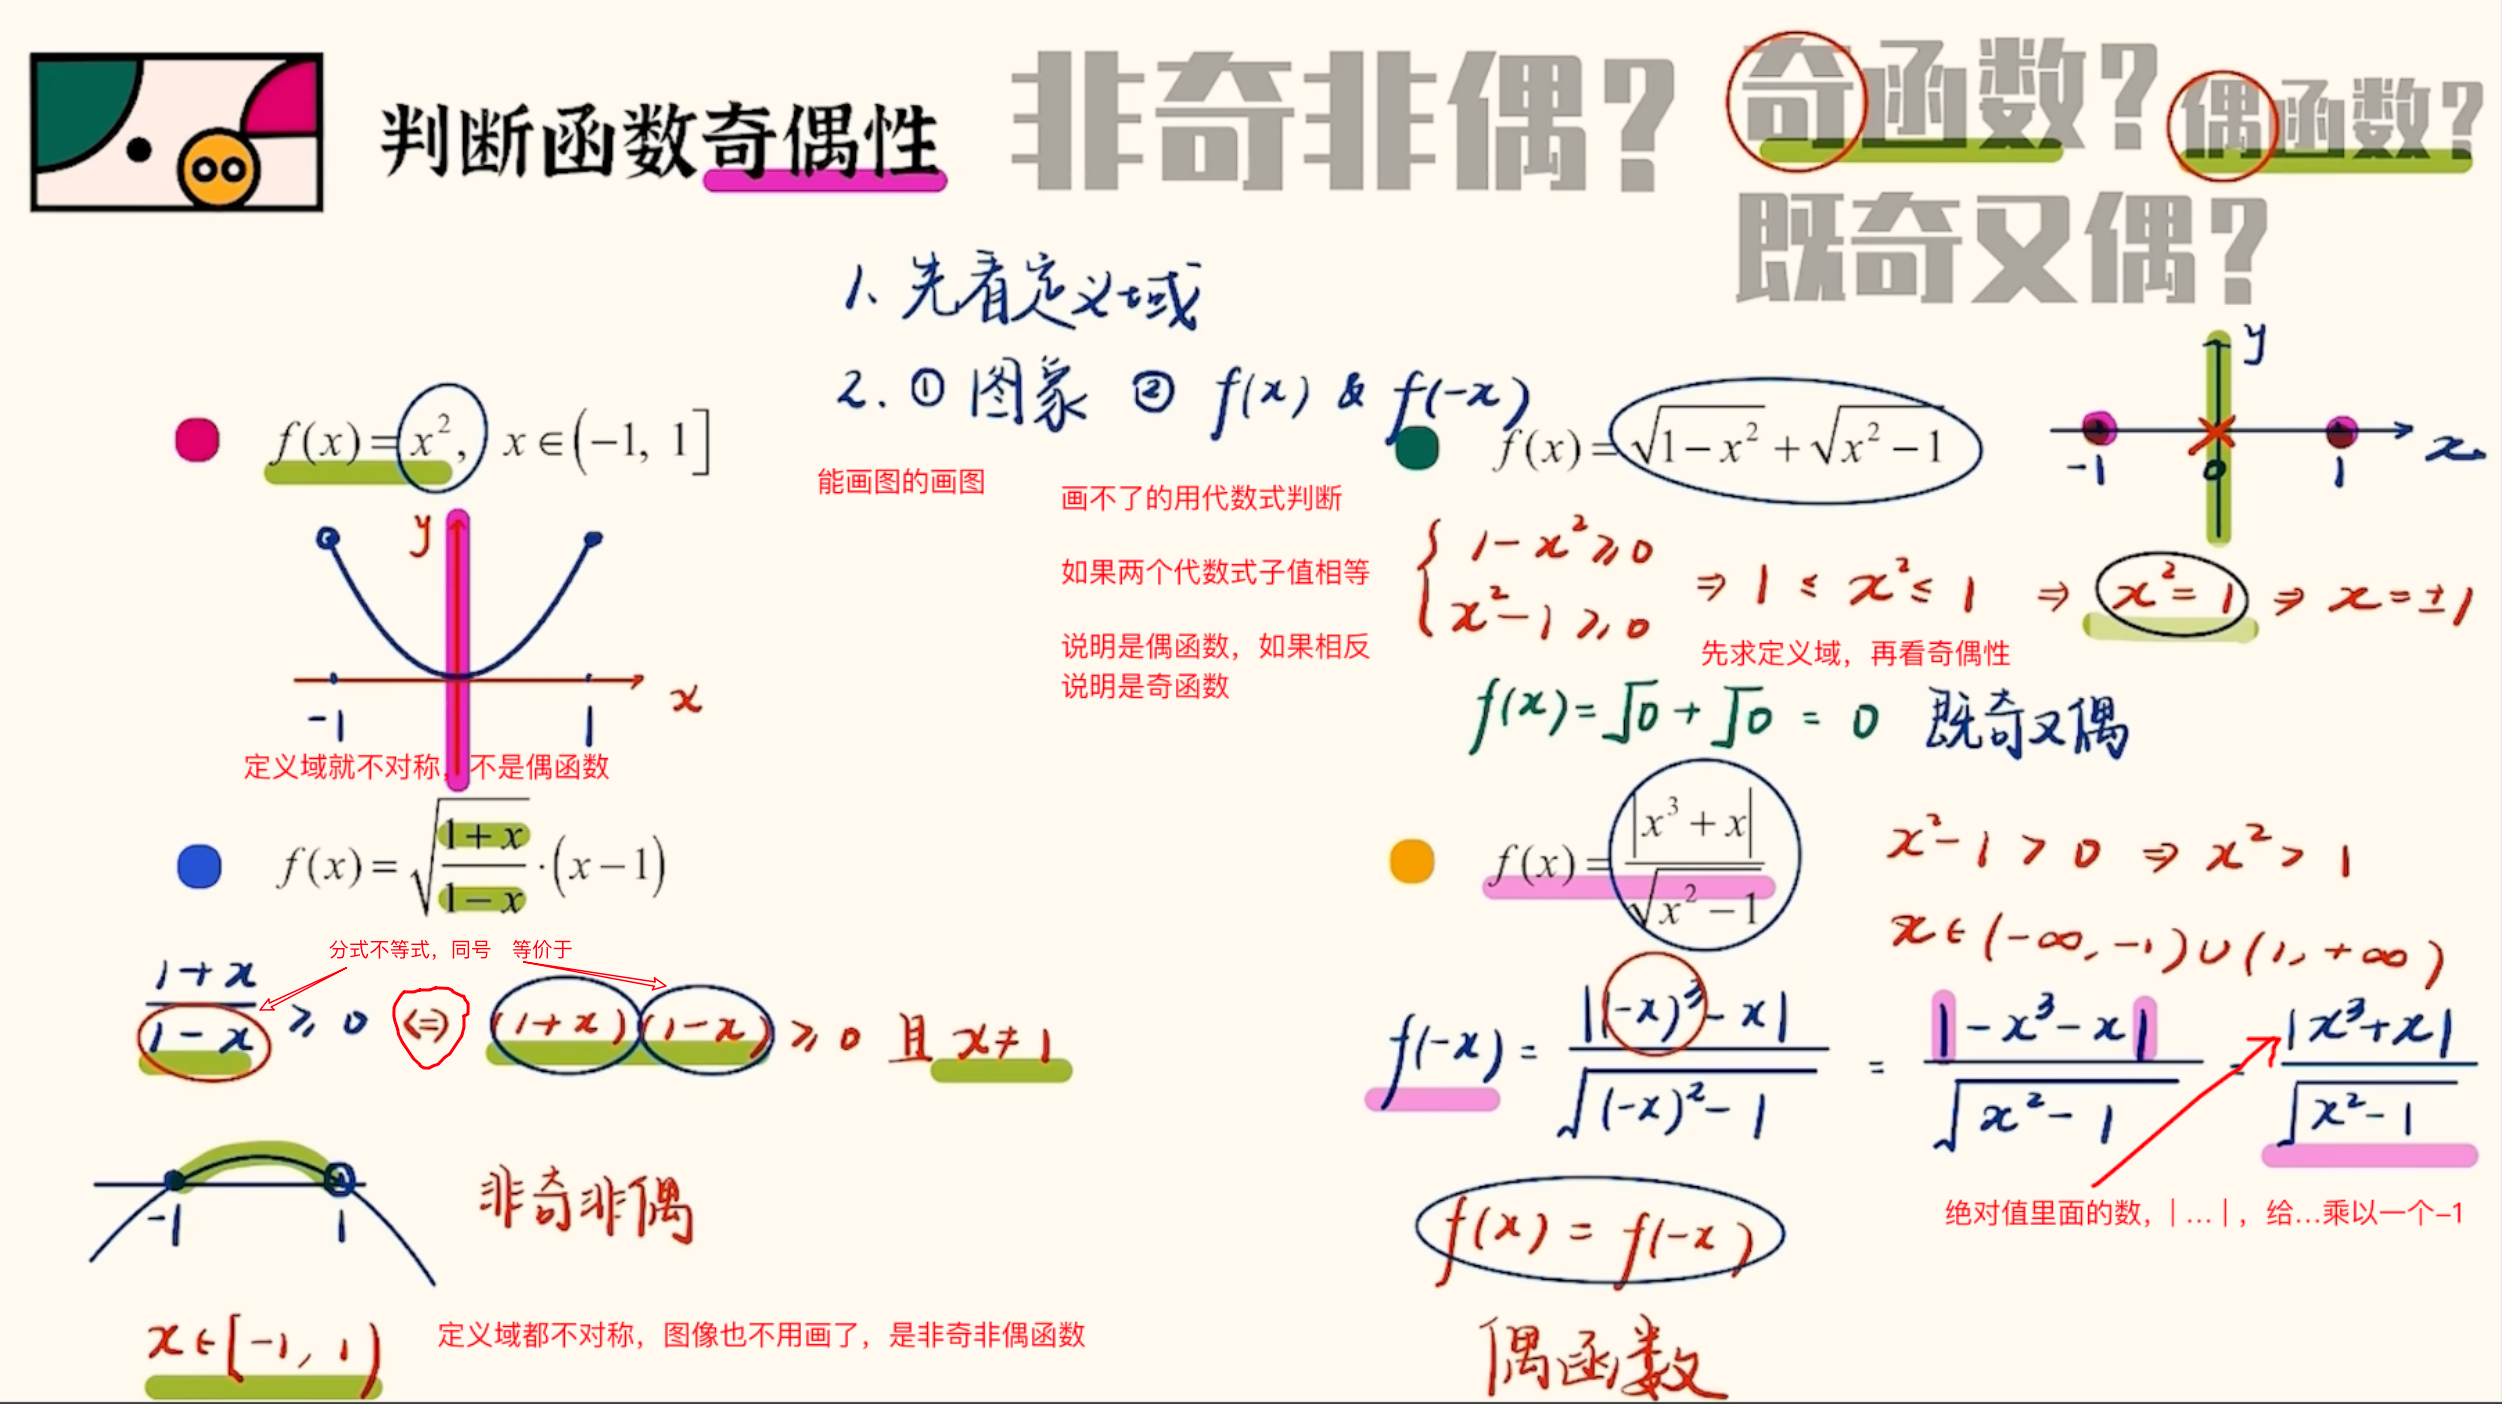 判断函数奇偶性
非奇非偶？
奇函数？
偶函数？
既奇又偶？
1、先看定义域
2. ① 图象 ② f(x) & f(-x)
能画图的画图
画不了的用代数式判断
如果两个代数式子值相等
说明是偶函数，如果相反
说明是奇函数
f(x)=x², x∈(-1, 1]
y
x
-1 1
定义域就不对称，不是偶函数
f(x)=√((1+x)/(1-x))·(x-1)
分式不等式，同号 等价于
(1+x)/(1-x) ≥ 0 ⇔ (1+x)(1-x) ≥ 0 且 x≠1
-1 1
非奇非偶
x∈[-1, 1)
定义域都不对称，图像也不用画了，是非奇非偶函数
f(x)=√(1-x²)+√(x²-1)
y
-1 0 1 x
{ 1-x²≥0
x²-1≥0 ⇒ 1≤x²≤1 ⇒ x²=1 ⇒ x=±1
先求定义域，再看奇偶性
f(x)=√0+√0=0 既奇又偶
f(x)=|x³+x|/√(x²-1)
x²-1>0 ⇒ x²>1
x∈(-∞,-1)∪(1,+∞)
f(-x)=|(-x)³-x|/√((-x)²-1) = |-x³-x|/√(x²-1) = |x³+x|/√(x²-1)
绝对值里面的数，| ... |，给...乘以一个-1
f(x)=f(-x)
偶函数